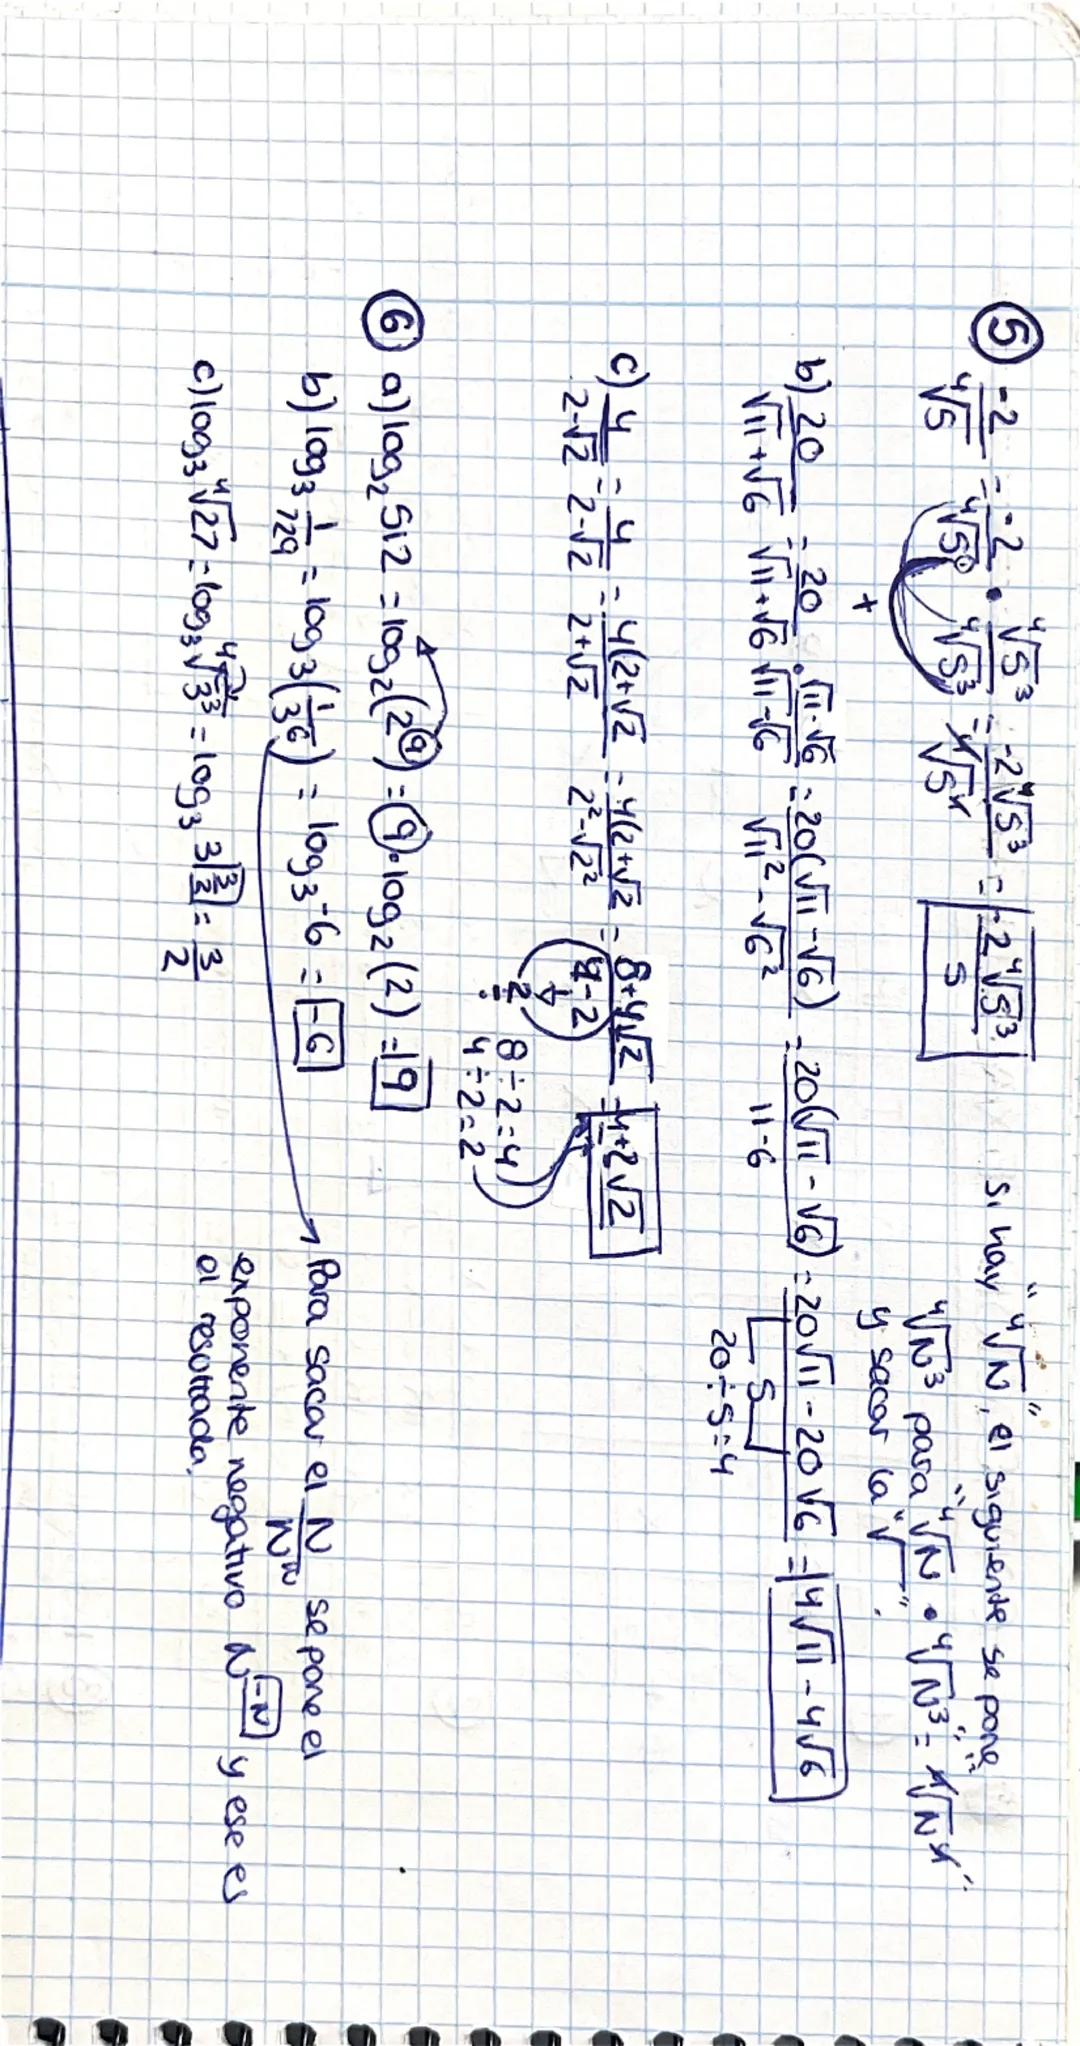 ⑤ -2/⁴√5 = -2/⁴√5¹ · ⁴√5³/⁴√5³ = -2⁴√5³/⁴√5⁴ = -2⁴√5³/5
+
Si hay "⁴√N", el siguiente se pone
"⁴√N³ para "⁴√N · ⁴√N³ = ⁴√N⁴".
y sacar la "√".
b) 20/√11+√6 = 20/√11+√6 · √11-√6/√11-√6 = 20(√11-√6)/√11²-√6² = 20(√11-√6)/11-6 = 20√11-20√6/5 = 4√11-4√6
20÷5=4
c) 4/2-√2 = 4/2-√2 = 4(2+√2/2+√2 = 4(2+√2/2²-√2² = 8+4√2/4-2 = 4+2√2
2
8÷2=4
÷ 4÷2=2
⑥ a) log₂512 = log₂(2⁹) = 9·log₂(2) = 9
b) log₃ 1/729 = log₃(1/3⁶) = log₃-6 = -6
Para sacar el N/Nᴺ se pone el
exponente negativo N⁻ᴺ y ese es
el resultado.
c) log₃⁴√27 = log₃⁴√3³ = log₃ 3